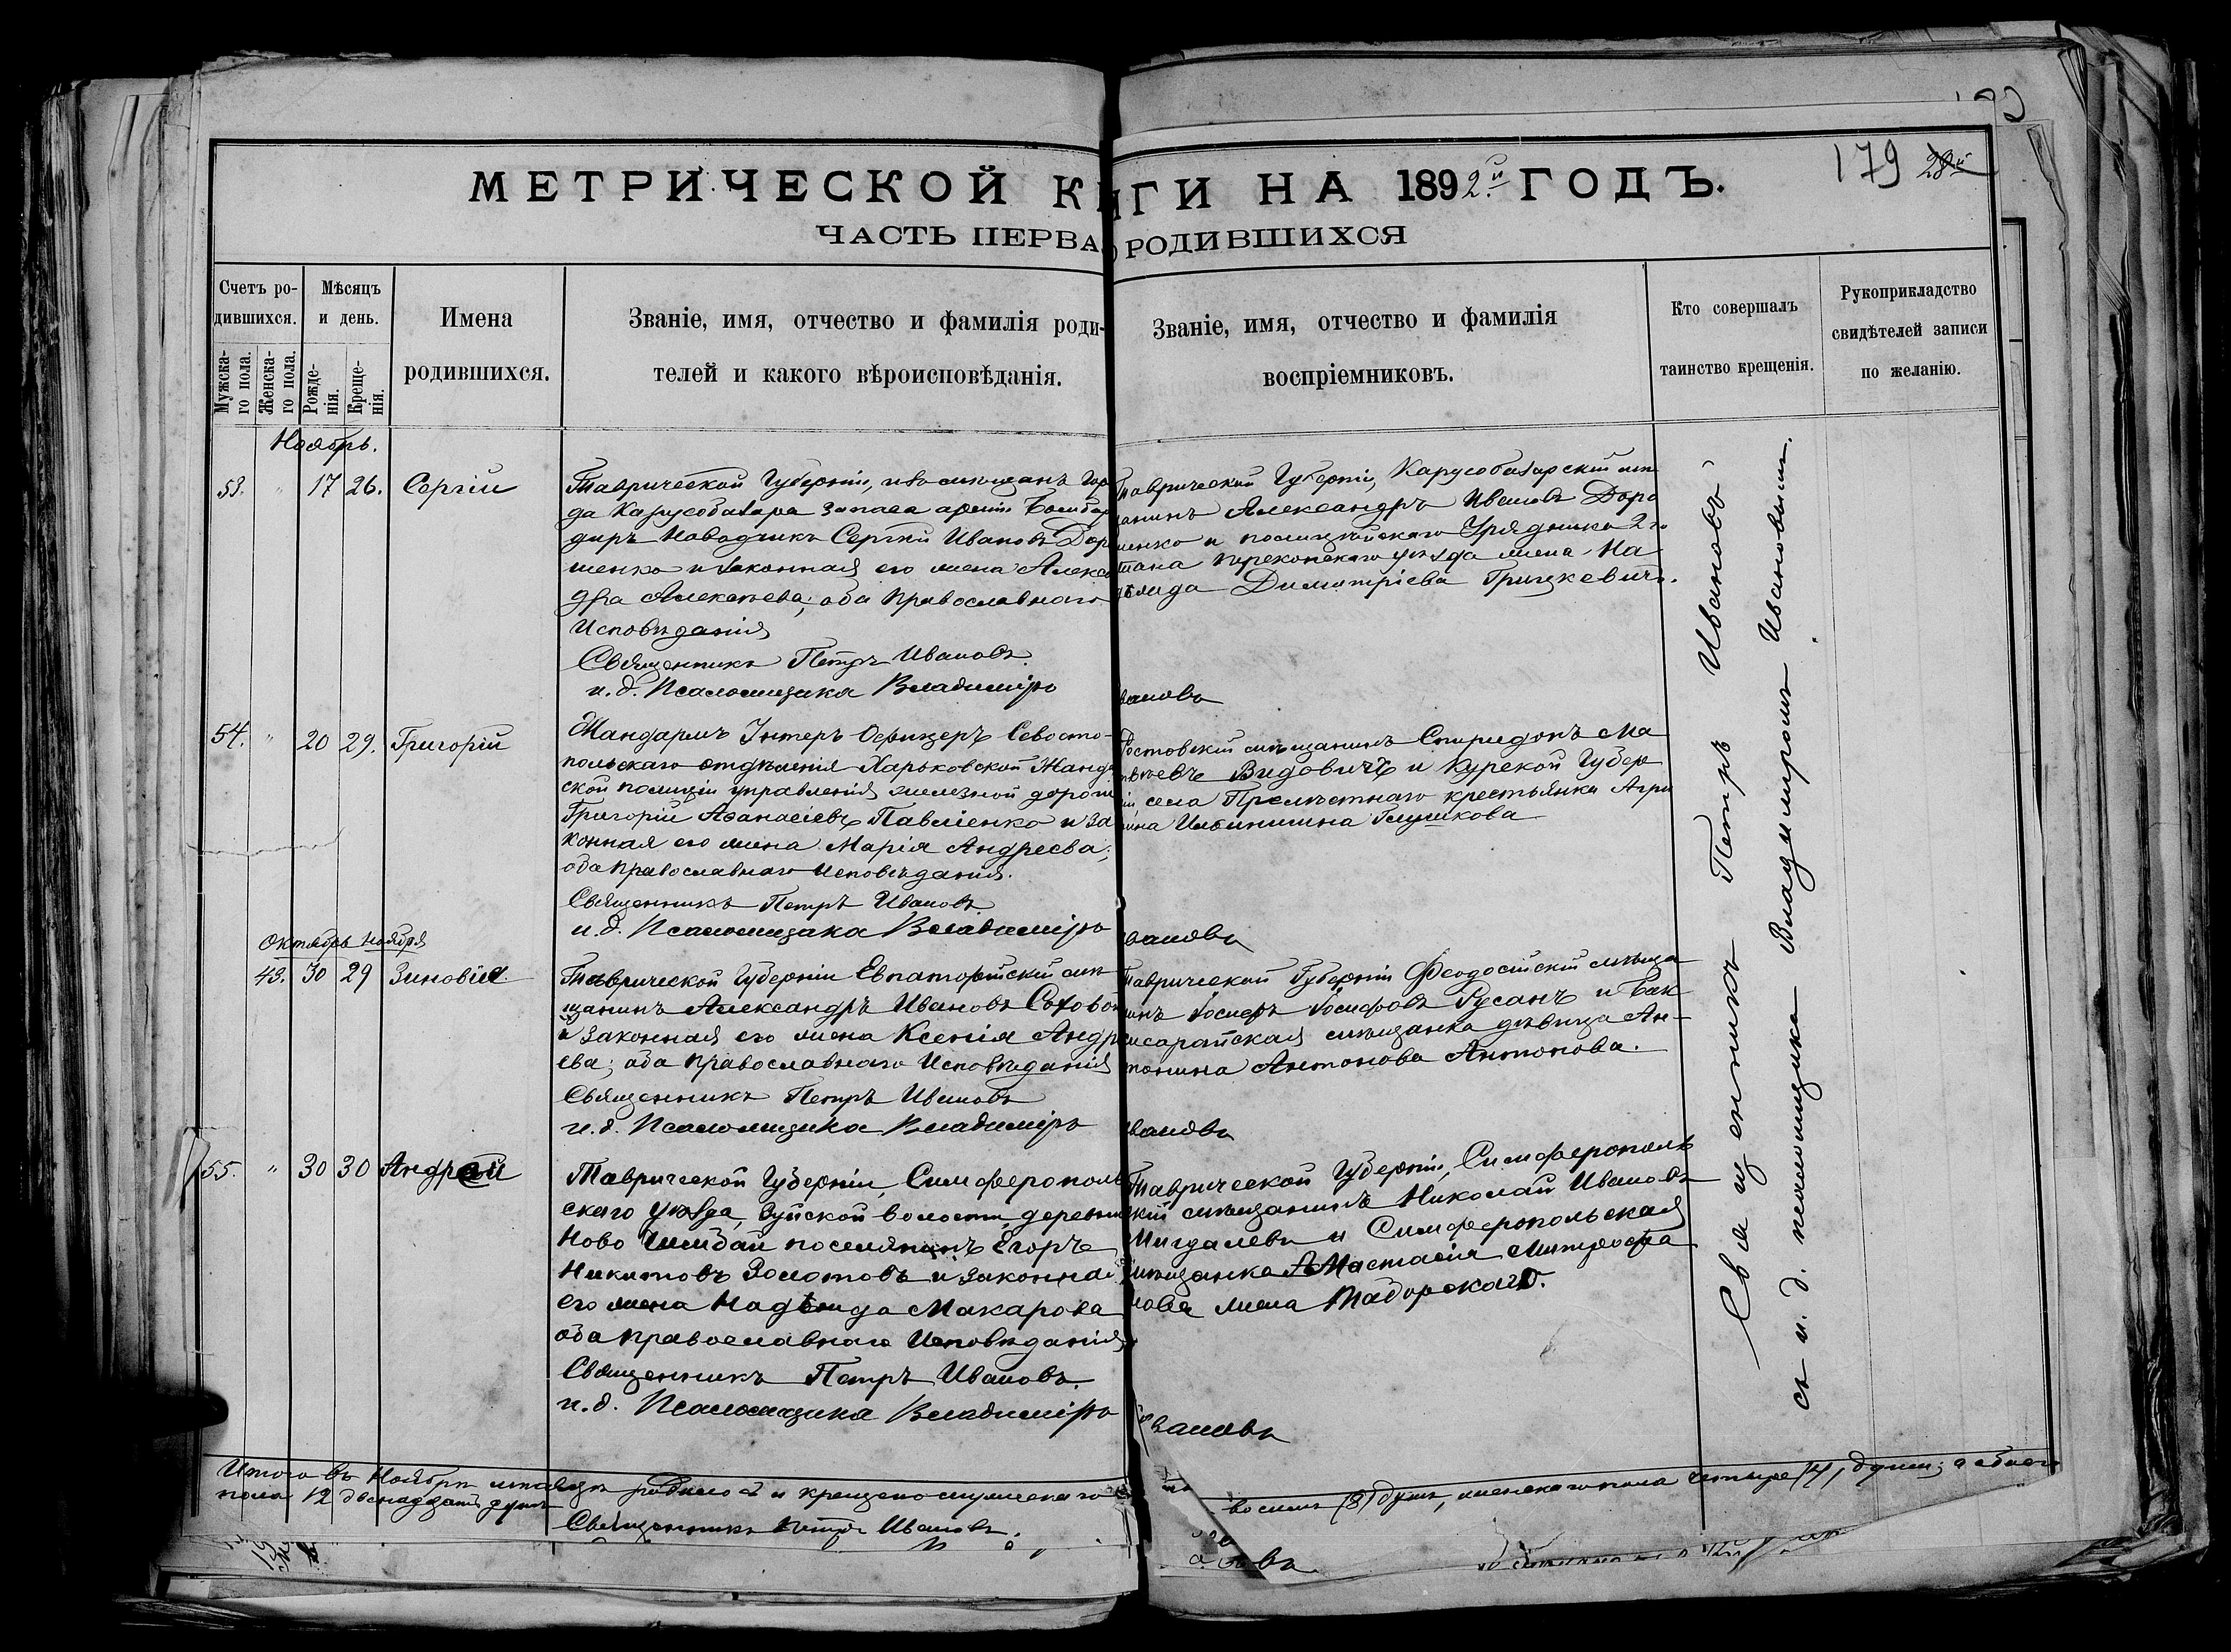 МЕТРИЧЕСКОЙ КНИГИ НА 1892й ГОДЪ.
179 28й
ЧАСТЬ ПЕРВАЯ О РОДИВШИХСЯ
Счетъ родившихся.
Мужскаго пола.
Женскаго пола.
Мѣсяцъ и день.
Рожденія.
Крещенія.
Имена родившихся.
Званіе, имя, отчество и фамилія роди-
телей и какого вѣроисповѣданія.
Званіе, имя, отчество и фамилія
воспріемниковъ.
Кто совершалъ
таинство крещенія.
Рукоприкладство
свидѣтелей записи
по желанію.
Ноябрь.
53. " 17 26. Сергій
Таврической Губерніи, изъ мѣщанъ Горо
да Карусобазара запаса армiи Бомбар
диръ Наводчикъ Сергѣй Ивановъ Доро
шенко и законная его жена Алексан
дра Алексѣева; оба Православнаго
Исповѣданія
Священникъ Петръ Ивановъ.
и.д. Псаломщика Владиміръ Ивановъ
Таврической Губерніи, Карусобазарскій мѣ
щанинъ Александръ Ивановъ Доро
шенко и полицейскаго Урядника 2го
стана Перекопскаго уѣзда жена На
дежда Димитріева Грицкевичъ.
54. " 20 29. Григорій
Жандармъ Унтеръ Офицеръ Севасто-
польскаго отдѣленія Харьковской Жандарм
ской полиціи управленія желѣзной дороги
Григорій Аѳанасіевъ Павліенко и за
конная его жена Марія Андреева;
оба Православнаго Исповѣданія.
Священникъ Петръ Ивановъ.
и.д. Псаломщика Владиміръ Ивановъ
Ростовскій мѣщанинъ Спиридонъ Ма
твѣевъ Видовичъ и Курской Губер
ніи, села Прелѣстнаго крестьянка Агри
пина Ильинишна Глушкова
Октябрь Ноября
43. 30 29 Зиновія
Таврической Губерніи Евпаторійскій мѣ
щанинъ Александръ Ивановъ
и законная его жена Ксенія Андре
ева; оба Православнаго Исповѣданія
Священникъ Петръ Ивановъ
и.д. Псаломщика Владиміръ Ивановъ
Таврической Губерніи Ѳеодосійскій мѣща
нинъ Іосифъ Іосифовъ Русанъ и Бах
чисарайская мѣщанка дѣвица Ан-
тонина Антонова Антонова.
55. " 30 30 Андрей
Таврической Губерніи, Симферополь
скаго уѣзда, Зуйской волости, деревни
Ново поселянинъ Егоръ
Никитовъ Золотовъ и законная
его жена Надежда Макарова
оба православнаго Исповѣданія
Священникъ Петръ Ивановъ.
и.д. Псаломщика Владиміръ Ивановъ
Таврической Губерніи, Симферополь
скій мѣщанинъ Николай Ивановъ
Мигдалевъ и Симферопольская
мѣщанка Анастасія Митрофа
нова жена Таборскаго.
Священникъ Петръ Ивановъ
съ и.д. псаломщика Владиміромъ Ивановымъ.
Итого въ Ноябрѣ мѣсяцѣ родилось и крещено мужескаго
восемь (8) душъ, женскаго пола четыре (4) души; а обоего
пола 12 двенадцать душъ
Священникъ Петръ Ивановъ.